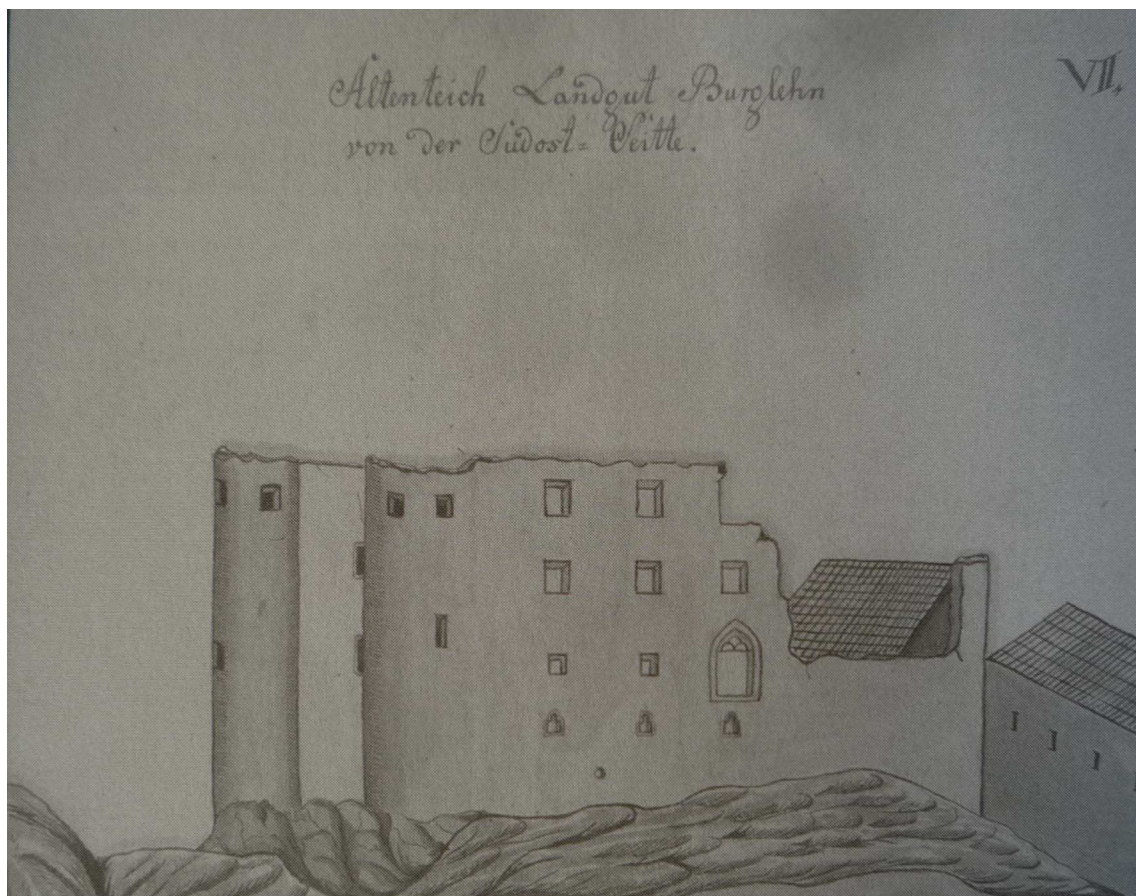 Altenteich Landgut Burglehn
von der Sudost=Seitte.
VII.